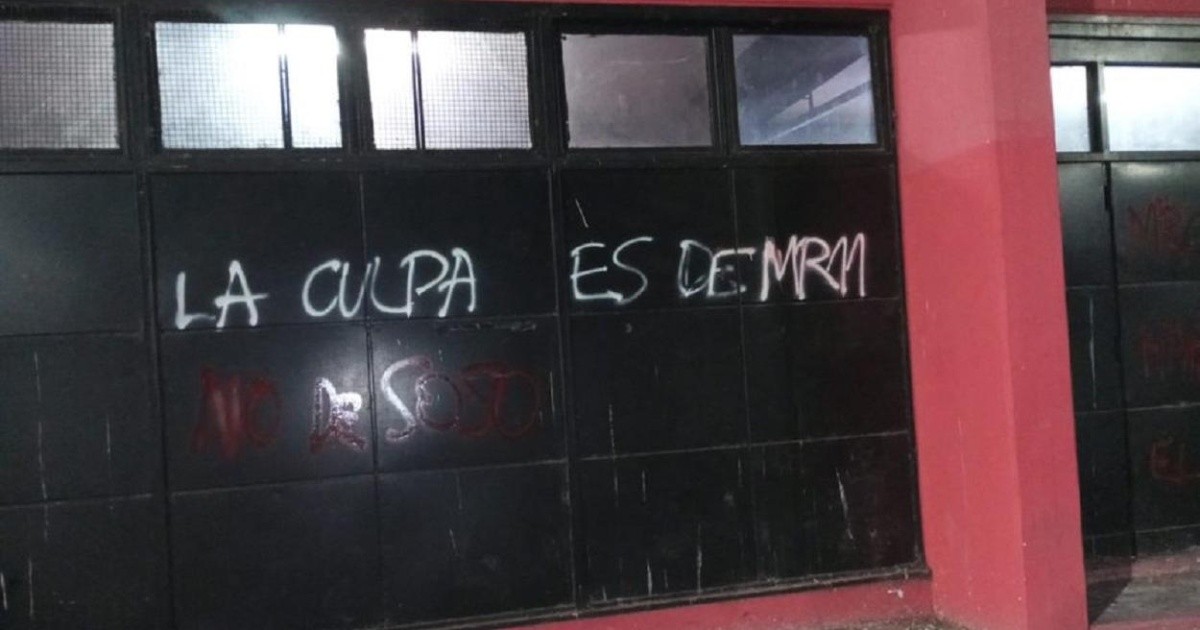 LA CULPA ES DE MRM
NO DE SOSO